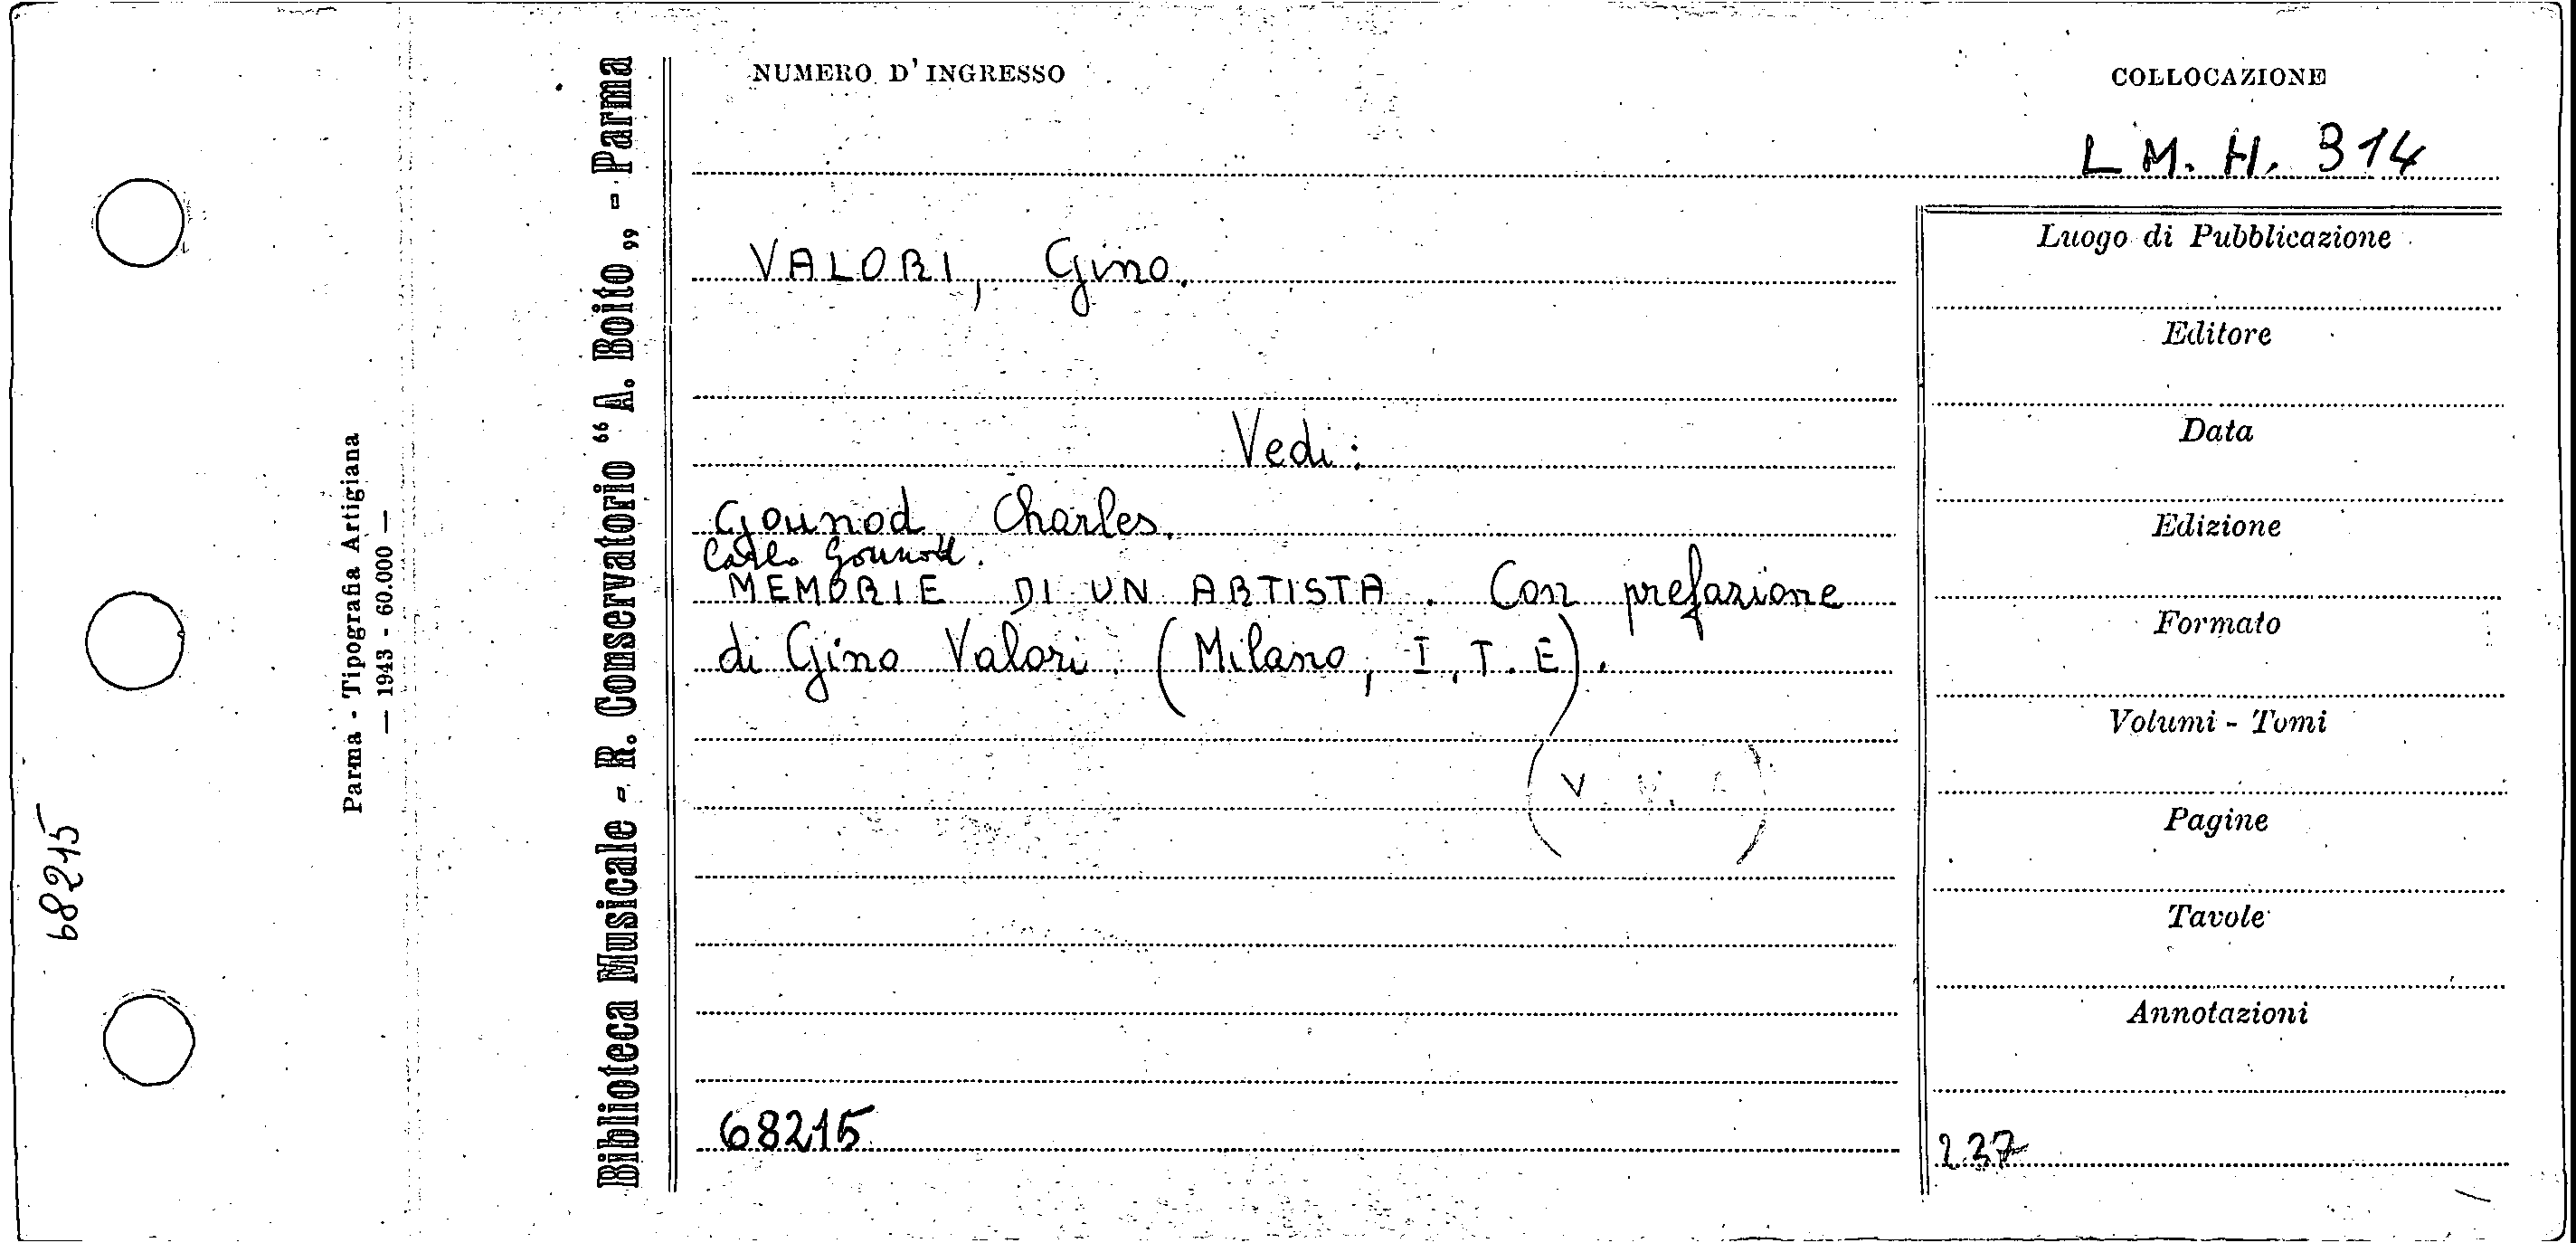 NUMERO D'INGRESSO
COLLOCAZIONE
L M. H. 314
VALORI, Gino.
Vedi:
Gounod Charles.
Carlo Gounod.
MEMORIE DI UN ARTISTA. Con prefazione
di Gino Valori. (Milano, I.T.E).
Luogo di Pubblicazione
Editore
Data
Edizione
Formato
Volumi - Tomi
Pagine
Tavole
Annotazioni
68215
237
Biblioteca Musicale - R. Conservatorio “A. Boito„ - Parma
Parma - Tipografia Artigiana
— 1943 - 60.000 —
68215